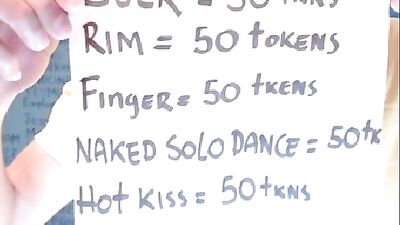 = 50 TKNS
RIM = 50 tOKENS
Finger = 50 tKENS
NAKED SOLO DANCE = 50tK
Hot KISS = 50tKNS